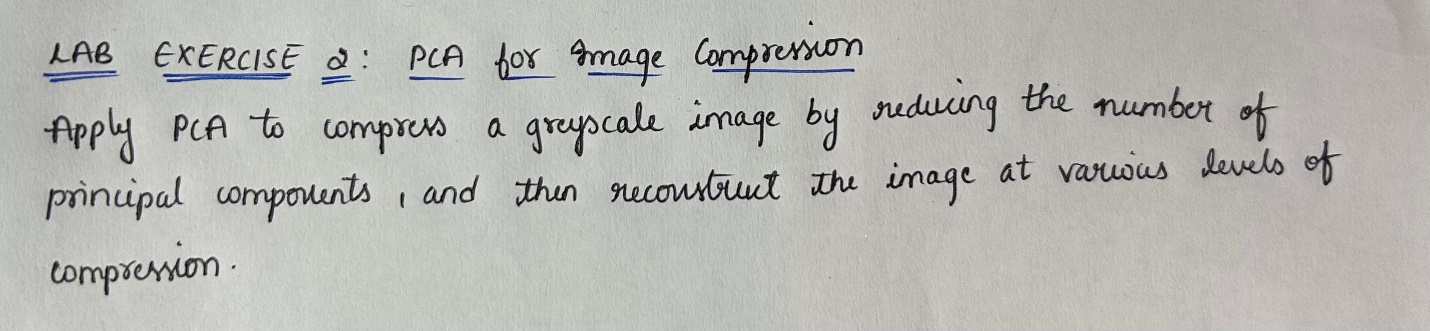 LAB EXERCISE 2: PCA for Image Compression
Apply PCA to compress a greyscale image by reducing the number of
principal components, and then reconstruct the image at various levels of
compression.